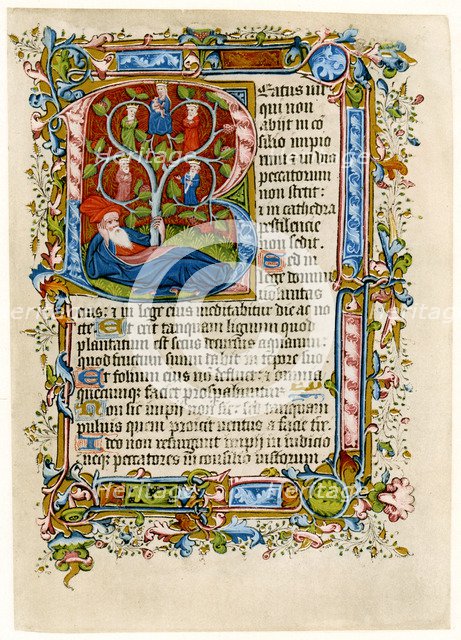 Beatus uir
qui non
abijt in cō
silio impio
rum ⁊ in via
peccatorum
non stetit:
⁊ in cathedra
pestilencie
non sedit.
Sed in
lege domini
voluntas
eius: ⁊ in lege eius meditabitur die ac no
cte Et erit tanquam lignum quod
plantatum est secus decursus aquarum:
quod fructum suum dabit in tempore suo
Et folium eius nō defluet: ⁊ omnia
quecunque faciet prosperabuntur
Non sic impij non sic: sed tanquam
puluis quem proicit ventus a facie
Ideo non resurgunt impij in iudicio
neque peccatores in consilio iustorum
heritage
heritage
heritage